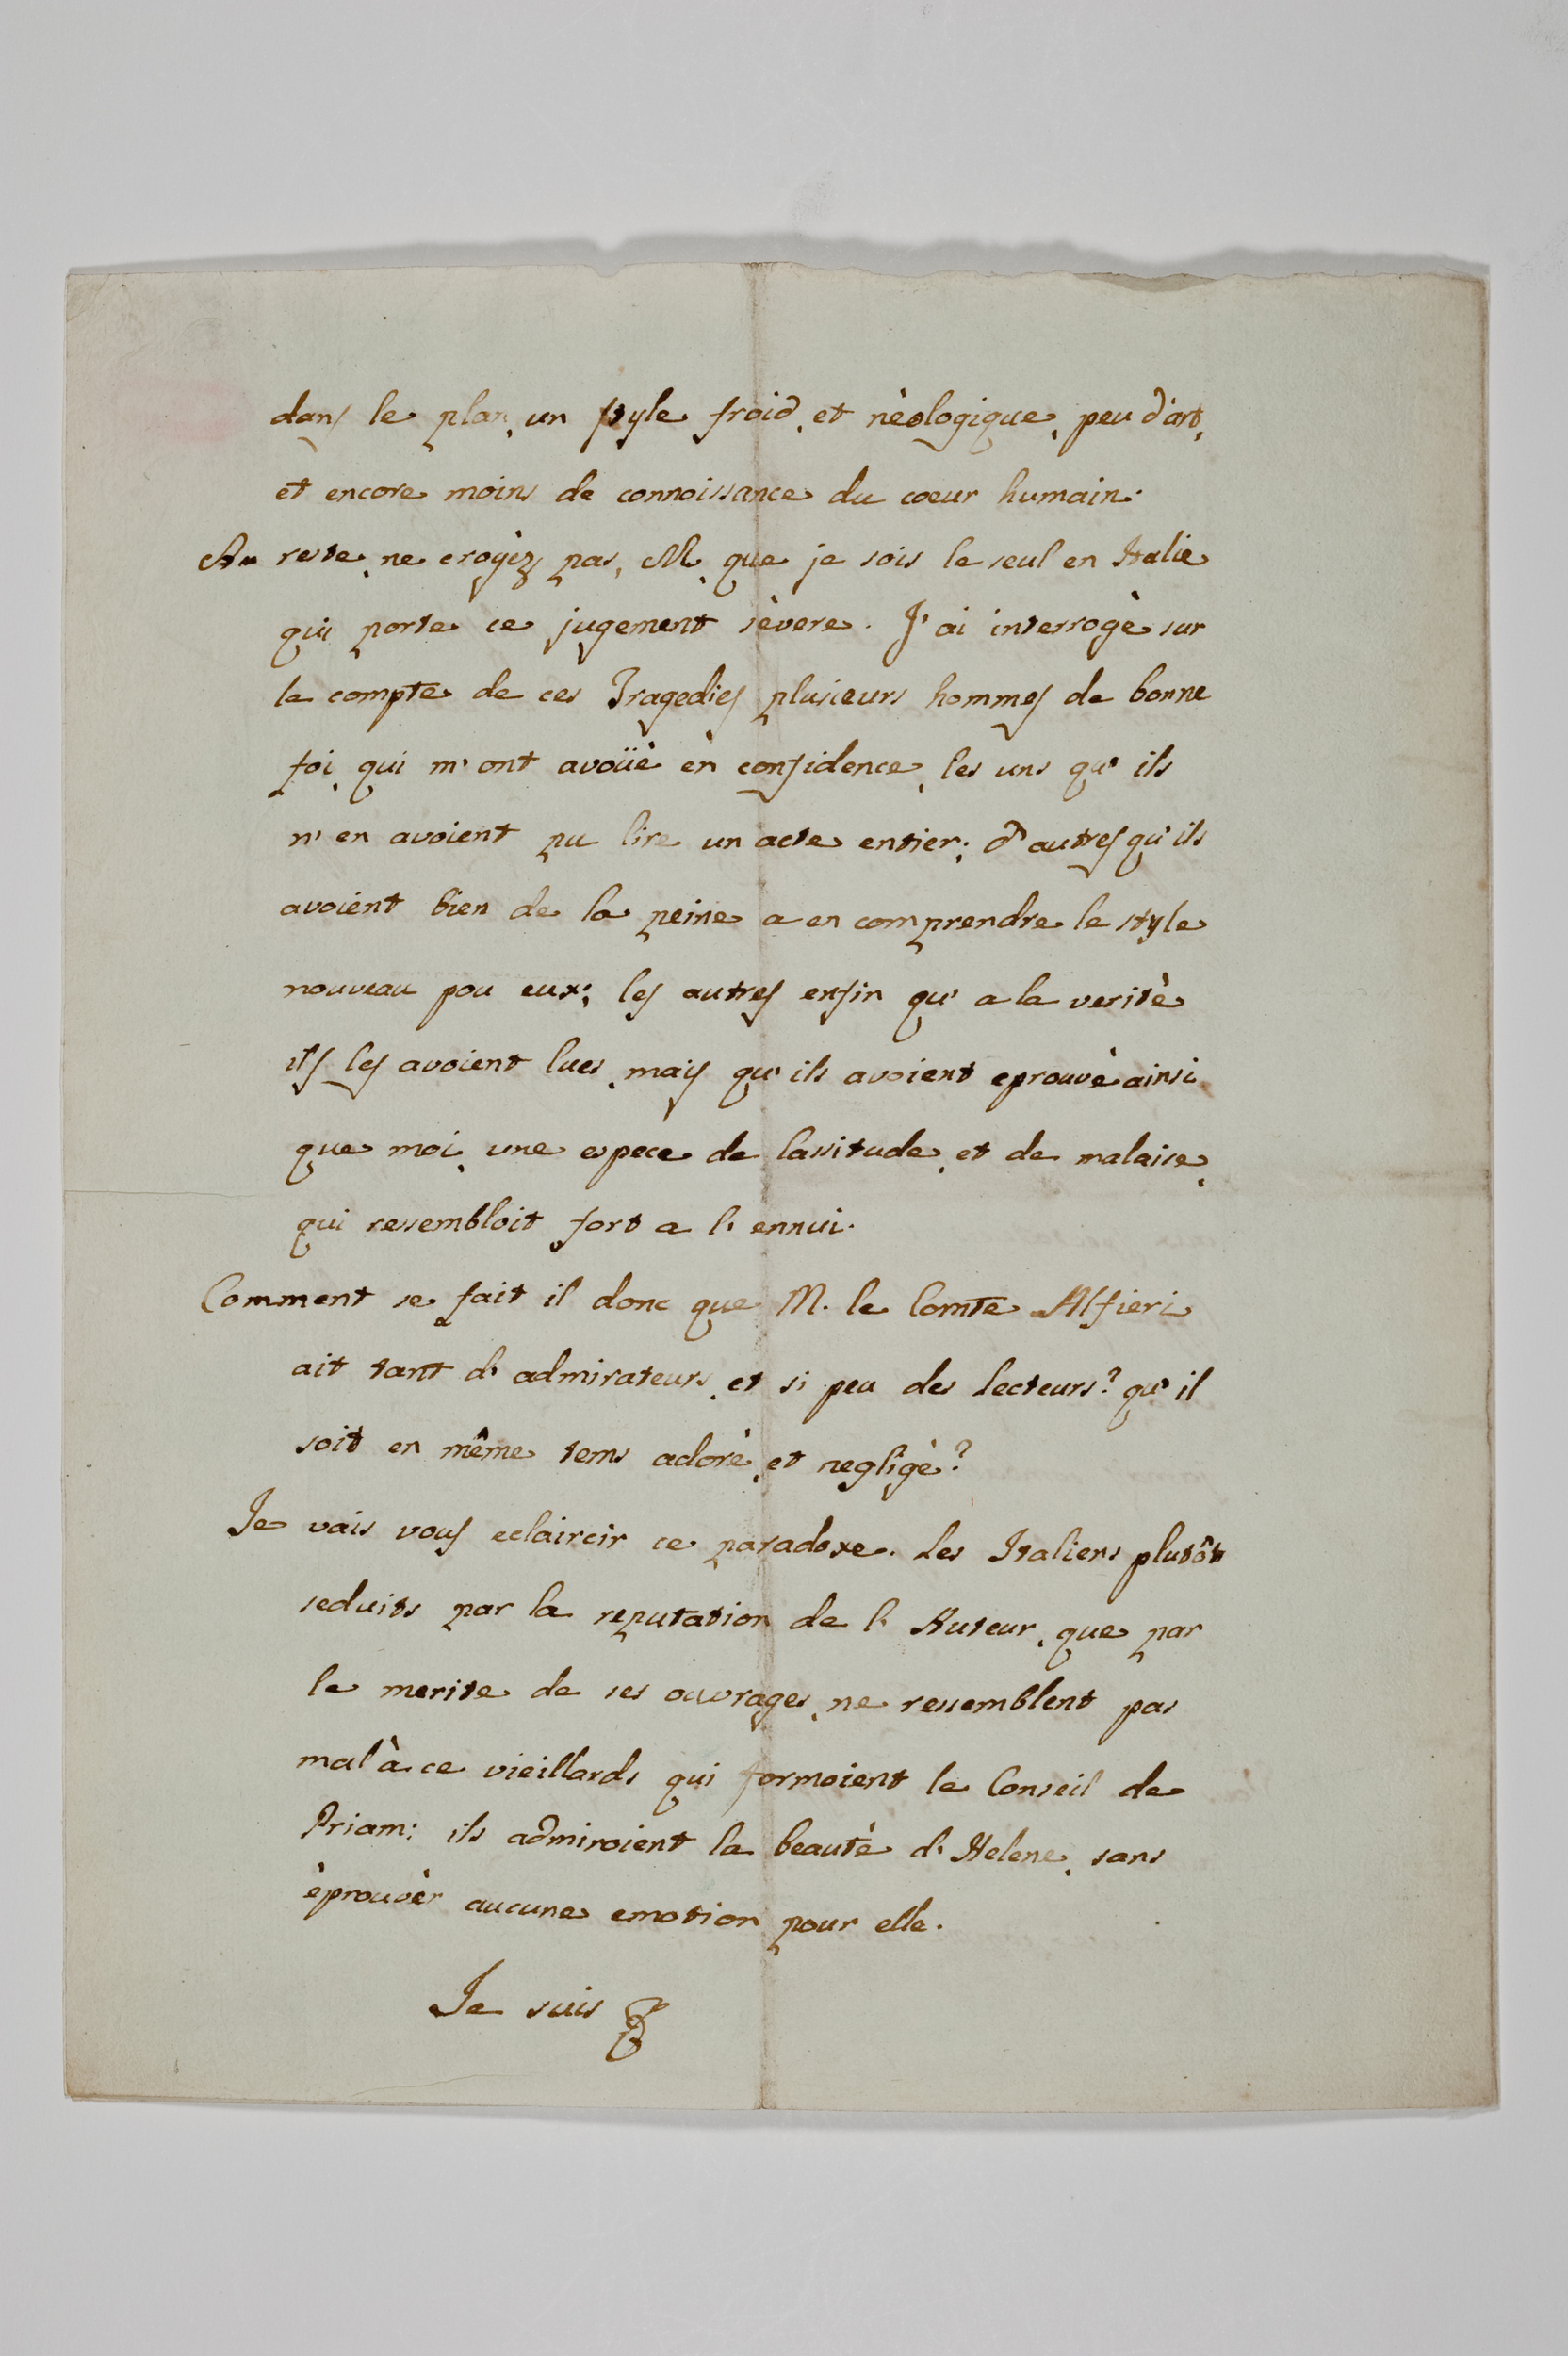 dans le plan, un style froid, et nèologique, peu d'art,
et encore moins de connoissance du coeur humain.
Au reste, ne croyèz pas, M. que je sois le seul en Italie
qui porte ce jugement sèvere. J'ai interrogè sur
le compte de ces Tragedies plusieurs hommes de bonne
foi, qui m'ont avoüè èn confidence, les uns qu'ils
n'en avoient pu lire un acte entier; d'autres qu'ils
avoient bien de la peine a en comprendre le style
nouveau pou eux; les autres enfin qu'a la veritè
ils les avoient lues, mais qu'ils avoient eprouvè ainsi
que moi, une espece de lassitude, et de malaise,
qui ressembloit fort a l'ennui.
Comment se fait il donc que M. le Comte Alfieri
ait tant d'admirateurs, et si peu des lecteurs? qu'il
soit en même tems adorè, et negligè?
Je vais vous eclaircir ce paradoxe. Les Italiens plutôt
seduits par la reputation de l'Auteur, que par
le merite de ses ouvrages, ne ressemblent pas
mal à ce vieillards qui formoient le Conseil de
Priam: ils admiroient la beautè d'Helene, sans
èprouvèr aucune emotion pour elle.
Je suis